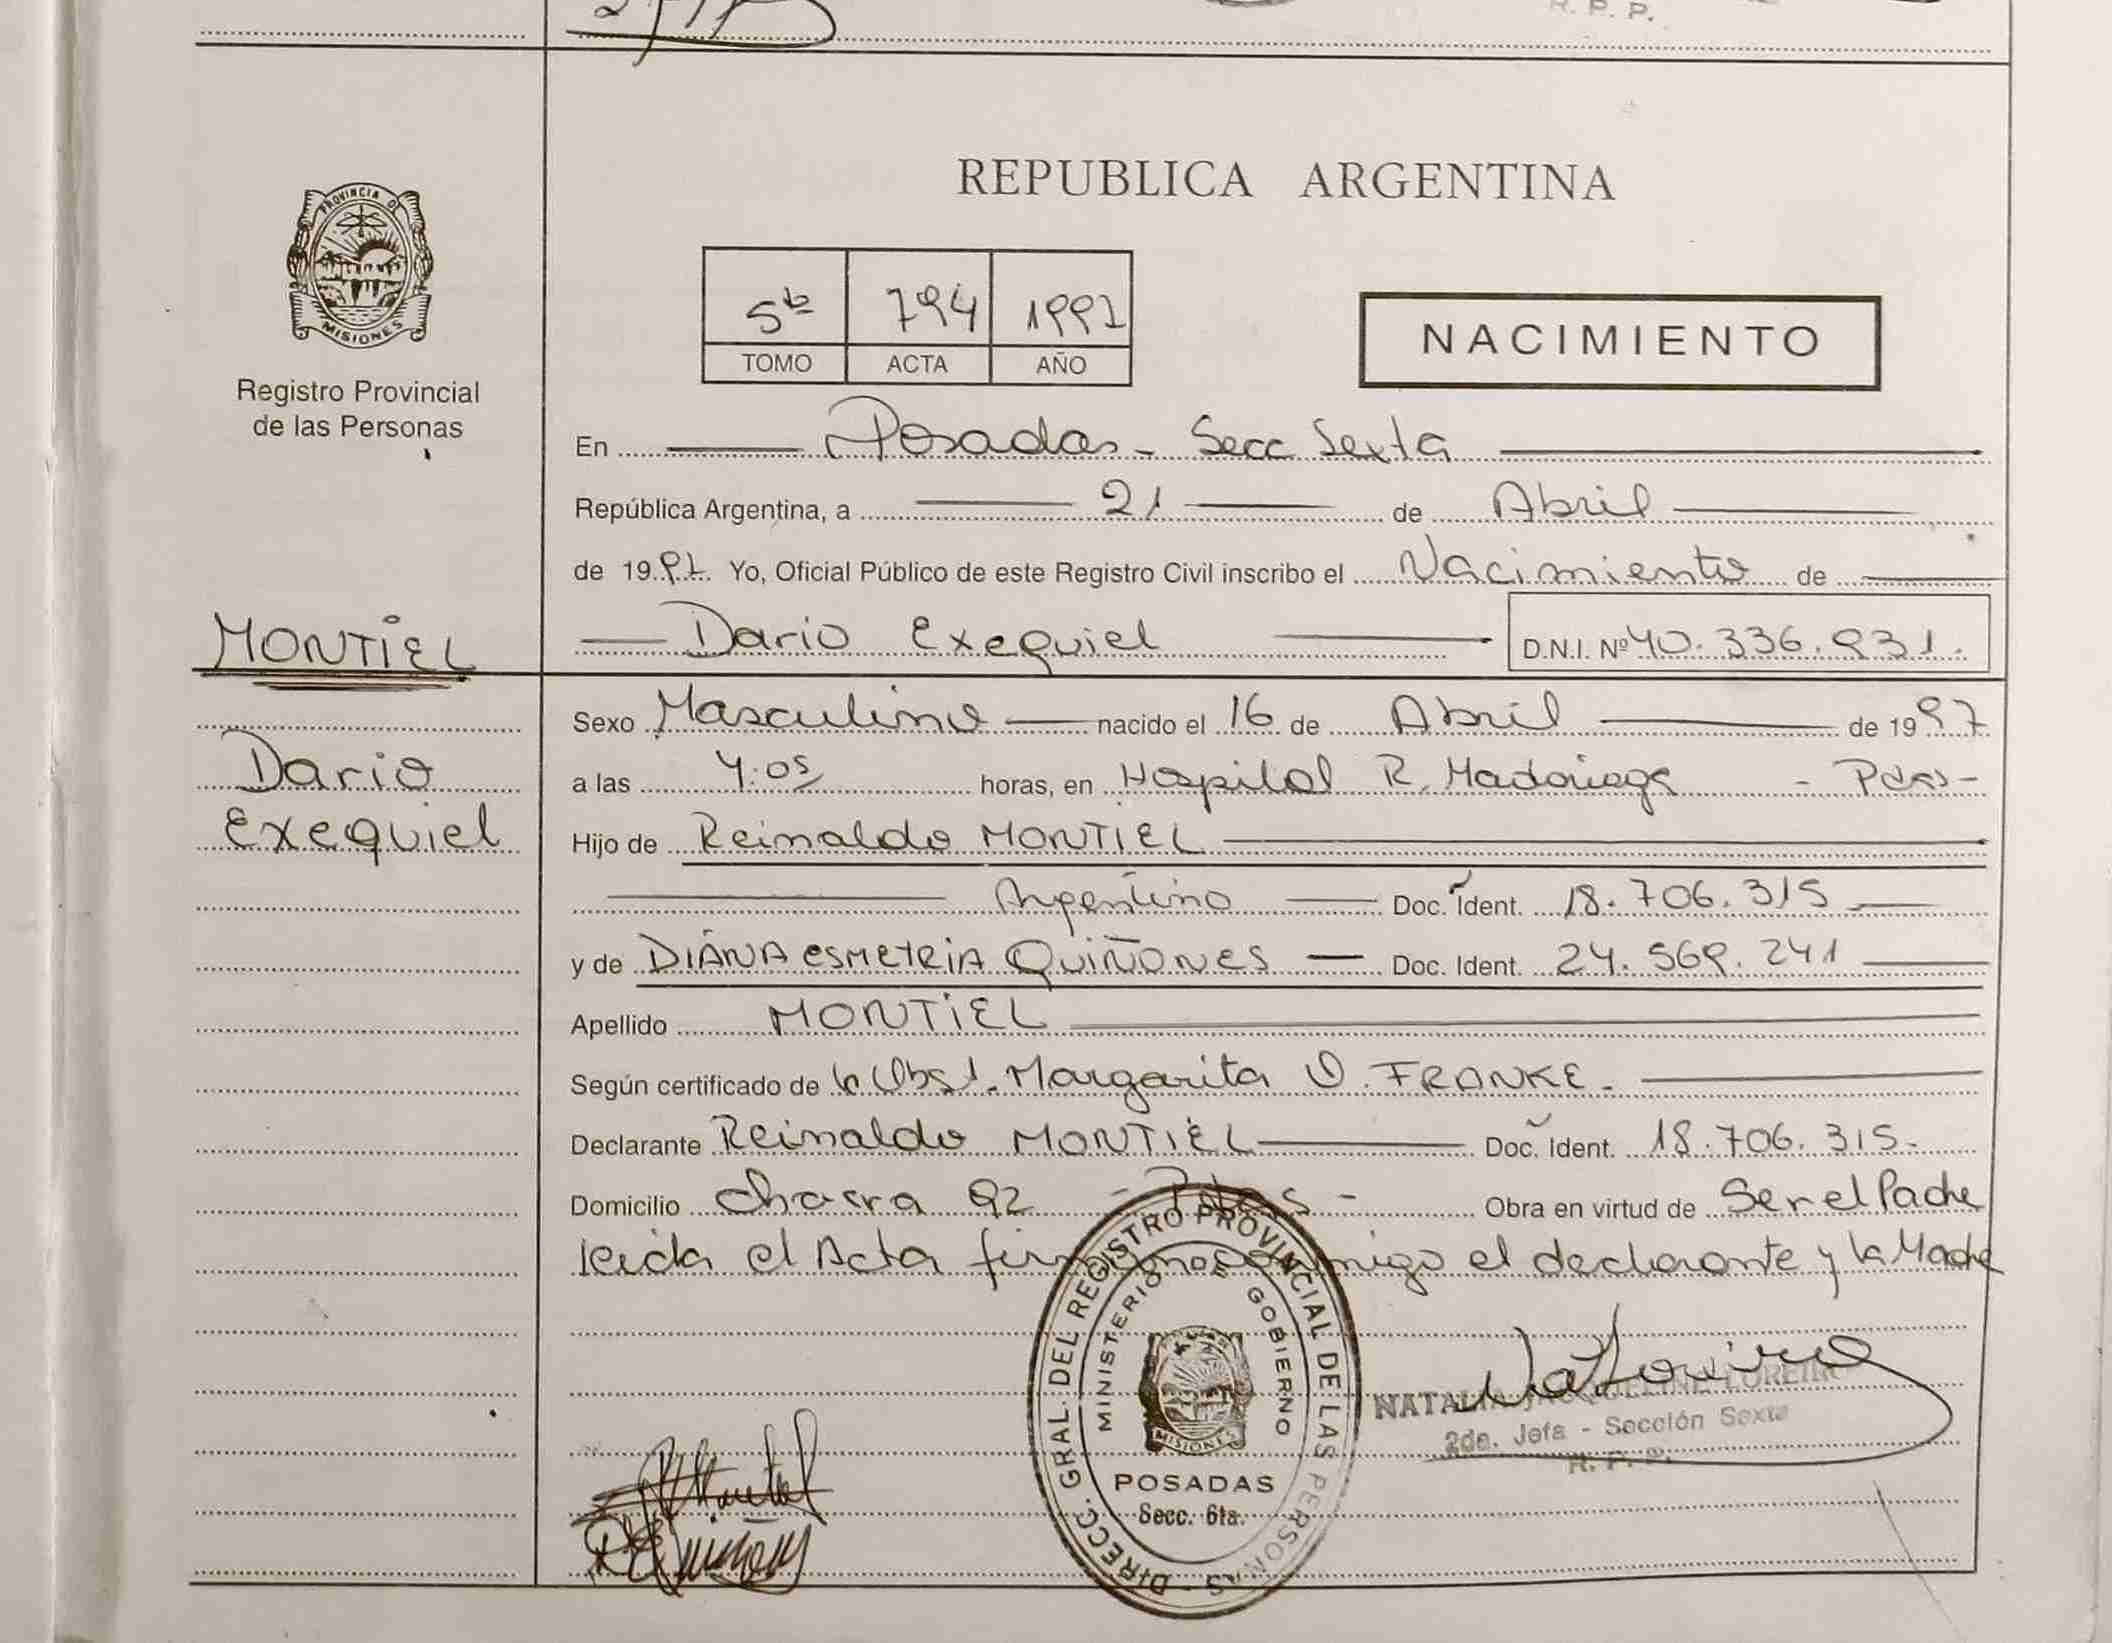 R. P. P.
PROVINCIA DE
MISIONES
Registro Provincial
de las Personas
REPUBLICA ARGENTINA
5 b 794 1997
TOMO ACTA AÑO
NACIMIENTO
En Posadas - Secc Sexta
República Argentina, a 21 de Abril
de 1997 Yo, Oficial Público de este Registro Civil inscribo el Nacimiento de
MONTIEL
Dario Exequiel D.N.I. Nº 40.336.931.
Sexo Masculino nacido el 16 de Abril de 1997
Dario
a las 4:05 horas, en Hospital R. Madariaga - Pdas -
Exequiel
Hijo de Reinaldo MONTIEL
Argentino Doc. Ident. 18.706.315
y de DIANA ESMETRIA QUIÑONES Doc. Ident. 24.569.241
Apellido MONTIEL
Según certificado de la Obst. Margarita O. FRANKE.
Declarante Reinaldo MONTIEL Doc. Ident. 18.706.315.
Domicilio Chacra 92 - Pdas - Obra en virtud de Ser el Padre
leida el Acta firman conmigo el declarante y la Madre
DIRECC. GRAL. DEL REGISTRO PROVINCIAL DE LAS PERSONAS
MINISTERIO DE GOBIERNO
MISIONES
POSADAS
Secc. 6ta.
NATALIA JAQUELINE LOREIRO
2da. Jefa - Sección Sexta
R. P. P.